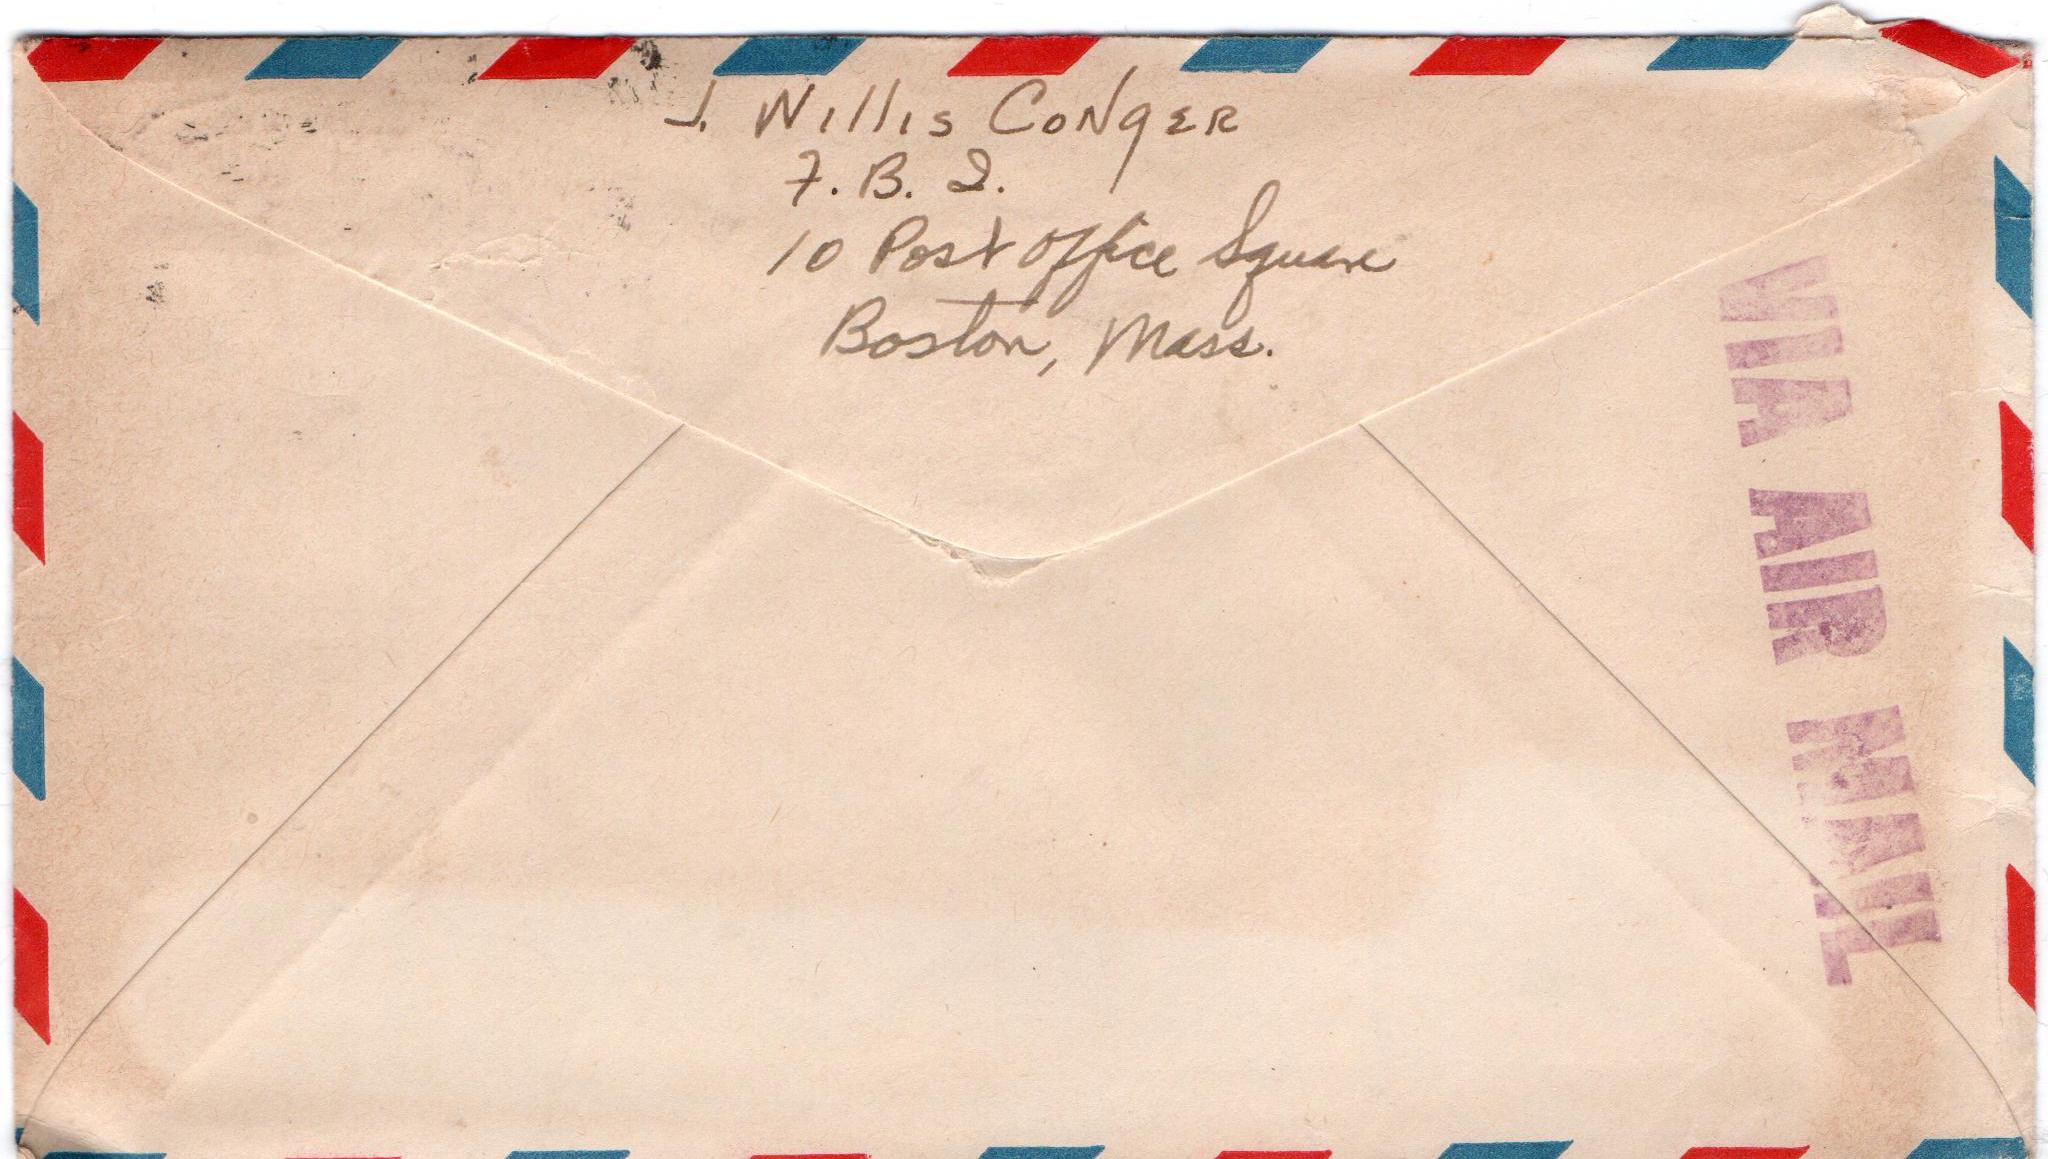 J. Willis Conger
F. B. I.
10 Post Office Square
Boston, Mass.
VIA AIR MAIL